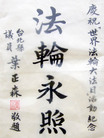 慶祝〝世界法輪大法日活動〞紀念
法輪永照
台北縣
議員 葉正森 敬題